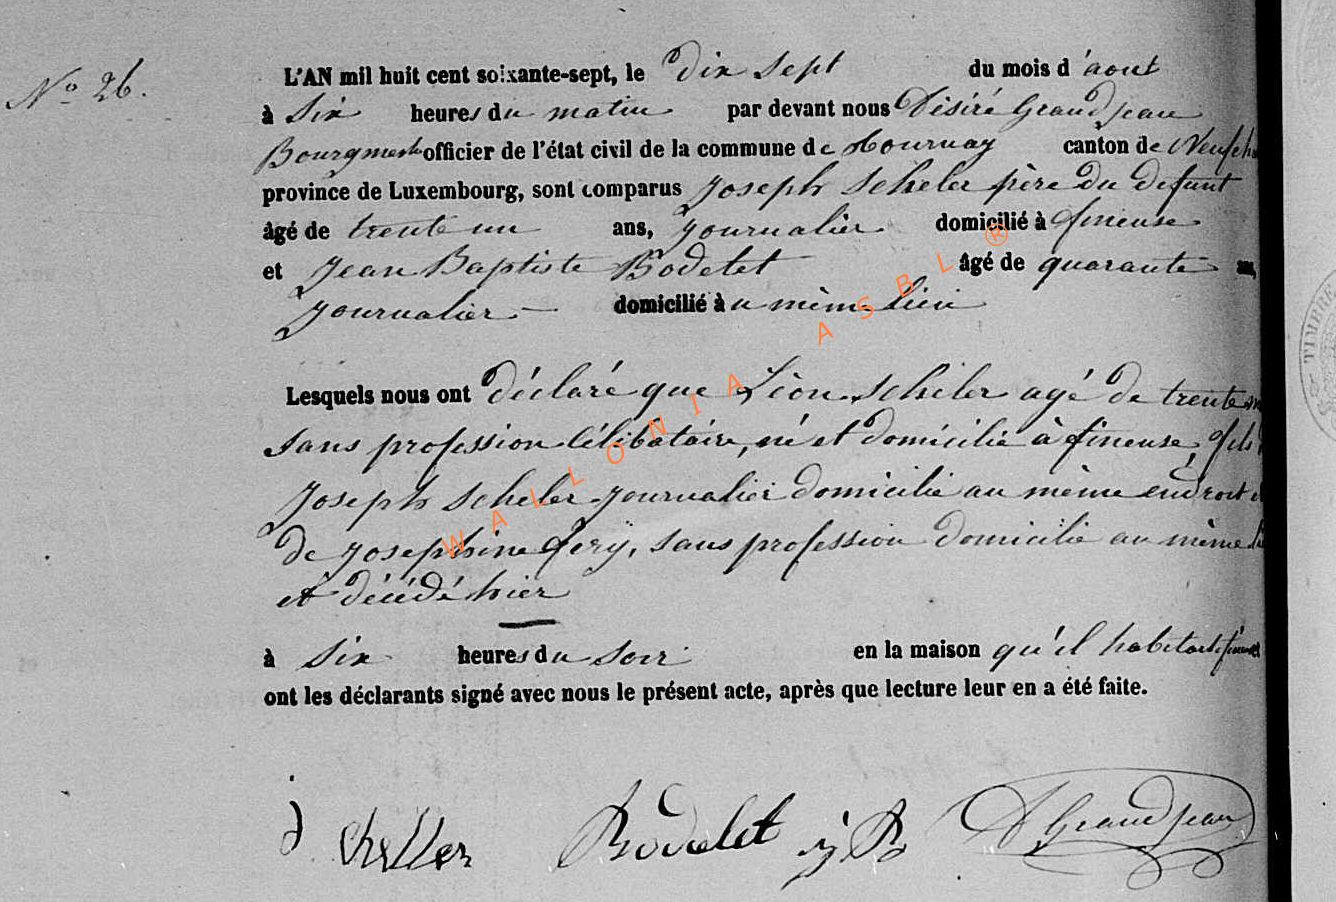 N° 26.
L'AN mil huit cent soixante-sept, le dix sept du mois d'aout
à six heures du matin par devant nous Désiré Grandjean
Bourgmestre officier de l'état civil de la commune de Tournay canton de Neufch
province de Luxembourg, sont comparus Joseph Scheler père du defunt
âgé de trente un ans, journalier domicilié à fineuse
et Jean Baptiste Bodelet âgé de quarante ans,
journalier domicilié au même lieu
Lesquels nous ont déclaré que Léon Scheler agé de trente
sans profession célibataire, né et domicilié à fineuse, fils
Joseph Scheler journalier domicilié au même endroit et
de Josephine fery, sans profession domicilié au même
et décédé hier
à six heures du soir en la maison qu'il habitait
ont les déclarants signé avec nous le présent acte, après que lecture leur en a été faite.
Scheller Bodelet j B D Grandjean
WALLONIA ASBL ®
TIMBRE